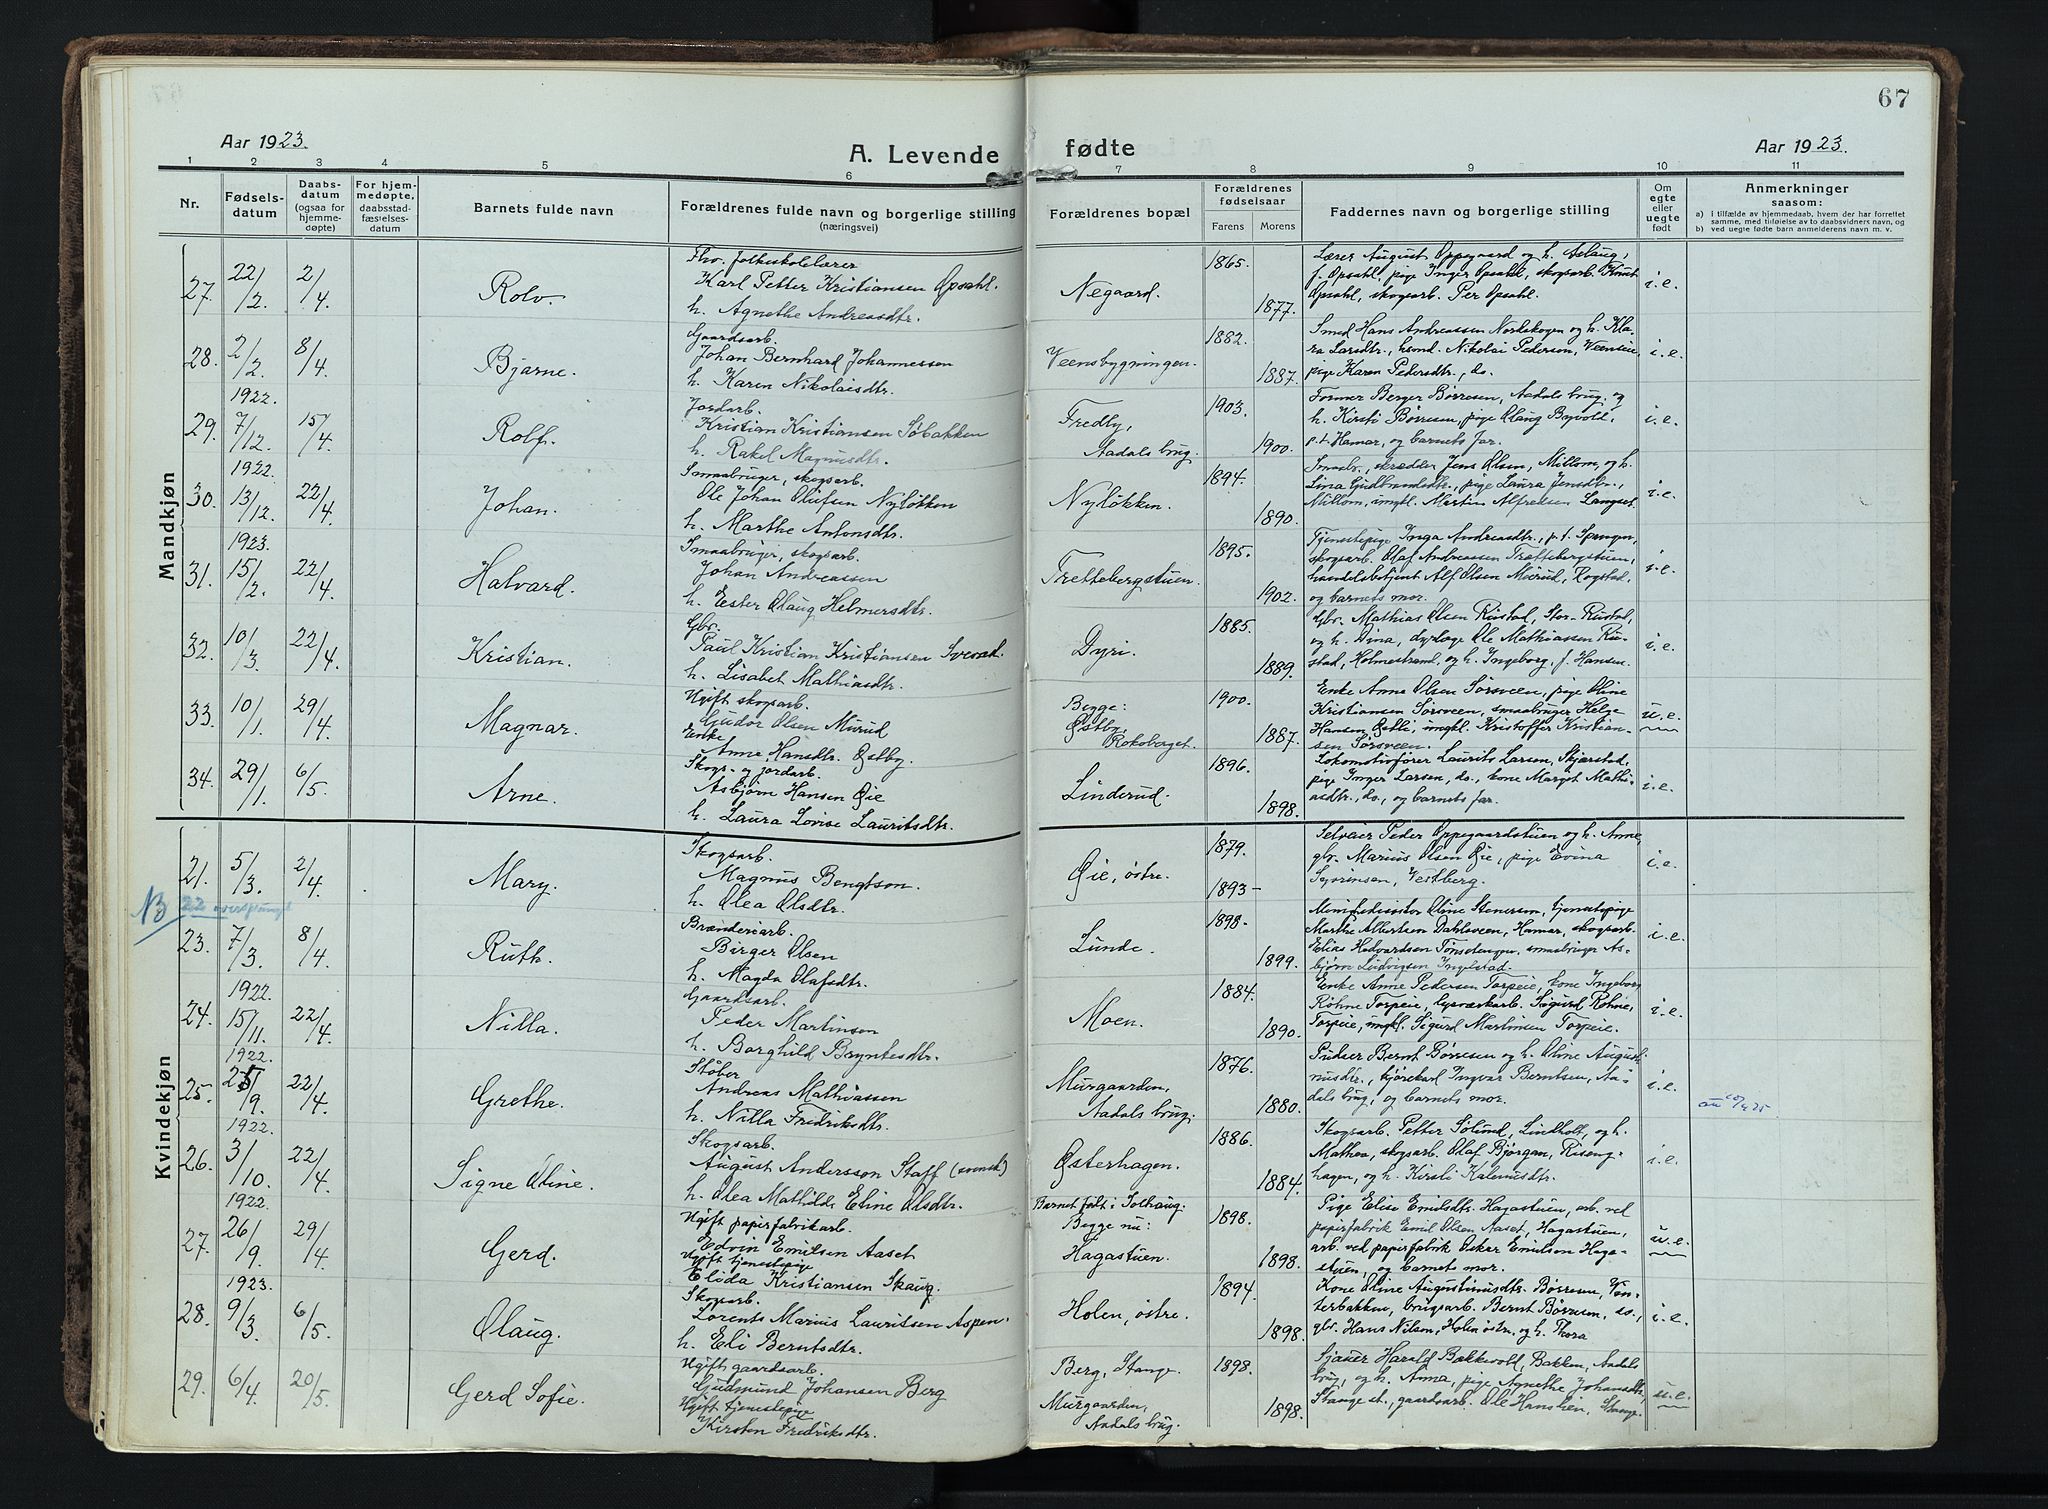 67
Aar 1923.
A. Levende
fødte
Aar 1923.
1 2 3 4 5 6 7 8 9 10 11
Nr.
Fødsels-
datum
Daabs-
datum
(ogsaa for
hjemme-
døpte)
For hjem-
medøpte,
daabsstad-
fæstelses-
datum
Barnets fulde navn
Forældrenes fulde navn og borgerlige stilling
(næringsvei)
Forældrenes bopæl
Forældrenes
fødselsaar
Farens Morens
Faddernes navn og borgerlige stilling
Om
egte
eller
uegte
født
Anmerkninger
saasom:
a) i tilfælde av hjemmedaab, hvem der har forrettet
samme, med tilføielse av to daabsvidners navn, og
b) ved uegte fødte barn anmelderens navn m. v.
Mandkjøn
27. 22/2. 2/4 Rolv.
Fhv. folkeskolelærer
Karl Petter Kristiansen Opsahl.
h. Agnethe Andreasdtr.
Negaard.
1865.
1877.
Lærer August Oppegaard og h. Aslaug,
f. Opsahl, pige Inger Opsahl, skogsarb. Knut
Opsahl, skogsarb. Per Opsahl.
i.e.
28. 2/2 8/4 Bjarne.
Gaardsarb.
Johan Bernhard Johannessen
h. Karen Nikolaisdtr.
Veensbygningen.
1882.
1887.
Smed Hans Andreassen Nordskogen og h. Kla-
ra Larsdtr., hsmd. Nikolai Pederson, Veenseie,
pige Karen Pedersdtr., do.
i.e.
1922.
29. 7/12. 15/4 Rolf.
Jordarb.
Kristian Kristiansen Søbakken
h. Rakel Magnusdtr.
Fredly,
Aadals brug.
1903.
1900.
Former Berger Børresen, Aadals brug, og
h. Kirsti Børresen, pige Olaug Byvold,
p.t. Hamar, og barnets far.
i.e.
1922.
30. 13/12. 22/4 Johan.
Smaabruger, skogsarb.
Ole Johan Olufsen Nyløkken
h. Marthe Antonsdtr.
Nyløkken.
1894.
1890.
Smaabr., skrædder Jens Olsen, Millom, og h.
Lina Gudbrandsdtr., pige Laura Jensdtr.,
Millom, ungkl. Martin Alfredsen Langset.
i.e.
1923.
31. 15/2. 22/4 Halvard.
Smaabruger, skogsarb.
Johan Andreassen
h. Ester Olaug Helmersdtr.
Trettebergstuen.
1895.
1902.
Tjenestepige Inga Andreasdtr., p.t. Spangen,
skogsarb. Olaf Andreassen Trættebergstuen,
handelsbetjent Alf Olsen Murud, Rogstad,
og barnets mor.
i.e.
32. 10/3 22/4 Kristian.
Gbr.
Paul Kristian Kristiansen Sverad.
h. Lisabet Mathiasdtr.
Dyri.
1885.
1889.
Gbr. Mathias Olsen Rustad, Stor-Rustad,
og h. Dina, dyrlæge Ole Mathiassen Ru-
stad, Holmestrand, og h. Ingeborg, f. Hansen.
i.e.
33. 10/1. 29/4 Magnar.
Ugift skogsarb.
Gudor Olsen Murud
Enke
Anne Hansdtr. Østby.
Begge:
Østby,
Rokoberget.
1900.
1887.
Enke Anne Olsen Sørsveen, pige Oline
Kristiansen Sørsveen, smaabruger Helge
Hansen Østli, ungkl. Kristoffer Kristian-
sen Sørsveen.
u.e.
34. 29/1. 6/5. Arne.
Skogs- og jordarb.
Asbjørn Hansen Øie
h. Laura Lovise Lauritsdtr.
Linderud.
1896.
1898.
Lokomotivfører Laurits Larsen, Skjærstad,
pige Inger Larsen, do., kone Margit Mathi-
asdtr., do., og barnets far.
i.e.
Kvindekjøn
21. 5/3. 2/4 Mary.
Skogsarb.
Magnus Bengtson.
h. Olea Olsdtr.
Øie, østre.
1879.
1893-
Selveier Peder Oppegaardstuen og h. Anne,
gbr. Marius Olsen Øie, pige Evina
Syvrinsen, Vestberg.
i.e.
NB 22 oversprunget
23. 7/3. 8/4 Ruth.
Brænderiarb.
Birger Olsen
h. Magda Olafsdtr.
Lunde.
1898.
1899.
Oline Stenersen, tjenestepige
Marthe Albertsen Dahlsveen, Hamar, skogsarb.
Elias Hedvardsen Tønsetengen, smaabruger As-
bjørn Ludvigsen Ingelstad.
i.e.
1922.
24. 15/11. 22/4 Nilla.
Gaardsarb.
Peder Martinsen
h. Borghild Bryntesdtr.
Moen.
1884.
1890.
Enke Anne Pedersen Torpeie, kone Ingeborg
Røhne Torpeie, lysværkarb. Sigurd Røhne,
Torpeie, ungkl. Sigurd Martinsen Torpeie.
i.e.
1922.
25. 25/9. 22/4 Grethe.
Støber
Andreas Mathiassen
h. Nilla Fredriksdtr.
Murgaarden,
Aadals brug.
1876.
1880.
Pudser Bernt Børresen og h. Oline August-
inusdtr., kjørekarl Ingvar Berntsen, Aa-
dals brug, og barnets mor.
i.e.
1922.
26. 3/10. 22/4 Signe Oline.
Skogsarb.
August Andersson Staff (svensk)
h. Olea Mathilde Eline Olsdtr.
Østerhagen.
1886.
1884.
Skogsarb. Petter Sølund, Lindholt, og h.
Mathea, skogsarb. Olaf Bjørgan, Riseng-
hagen, og h. Kirsti Kalenusdtr.
i.e.
1922.
27. 26/9 29/4 Gerd.
Ugift papirfabrikarb.
Edvin Emilsen Aaset
Ugift tjenestepige
Elida Kristiansen Skaug
Barnet født i Solhaug.
Begge nu:
Hagastuen.
1898.
1898.
Pige Elise Emilsdtr. Hagastuen, arb. ved
papirfabrik Emil Olsen Aaset, Hagastuen,
arb. ved papirfabrik Oskar Emilson Haga-
stuen, og barnets mor.
u.e.
1923.
28. 9/3. 6/5. Olaug.
Skogsarb.
Lorents Marius Lauritsen Aspen.
h. Eli Berntsdtr.
Holen, østre.
1894.
1898.
Kone Oline Augustinusdtr. Børresen, Vən-
terbakken, brugsarb. Bernt Børresen, do.,
gbr. Hans Nilsen, Holen østre, og h. Thora
i.e.
29. 6/4. 20/5. Gerd Sofie.
Ugift gaardsarb.
Gudmund Johansen Berg
Ugift tjenestepige
Kirsten Fredriksdtr.
Berg, Stange.
Murgaarden,
Aadals brug.
1898.
1898.
Harald Bækkevold, Bakken, Aadals
brug, og h. Anna, pige Agnethe Johansdtr,
Stange st., gaardsarb. Ole Hansen, Stange.
u.e.